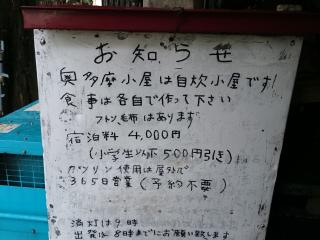 お知らせ
奥多摩小屋は自炊小屋です!
食事は各自で作って下さい
フトン,毛布はあります
宿泊料 4,000円
(小学生以下500円引き)
ガソリン使用は屋外で
365日営業(予約不要)
消灯は9時
出発は8時までにお願い致します